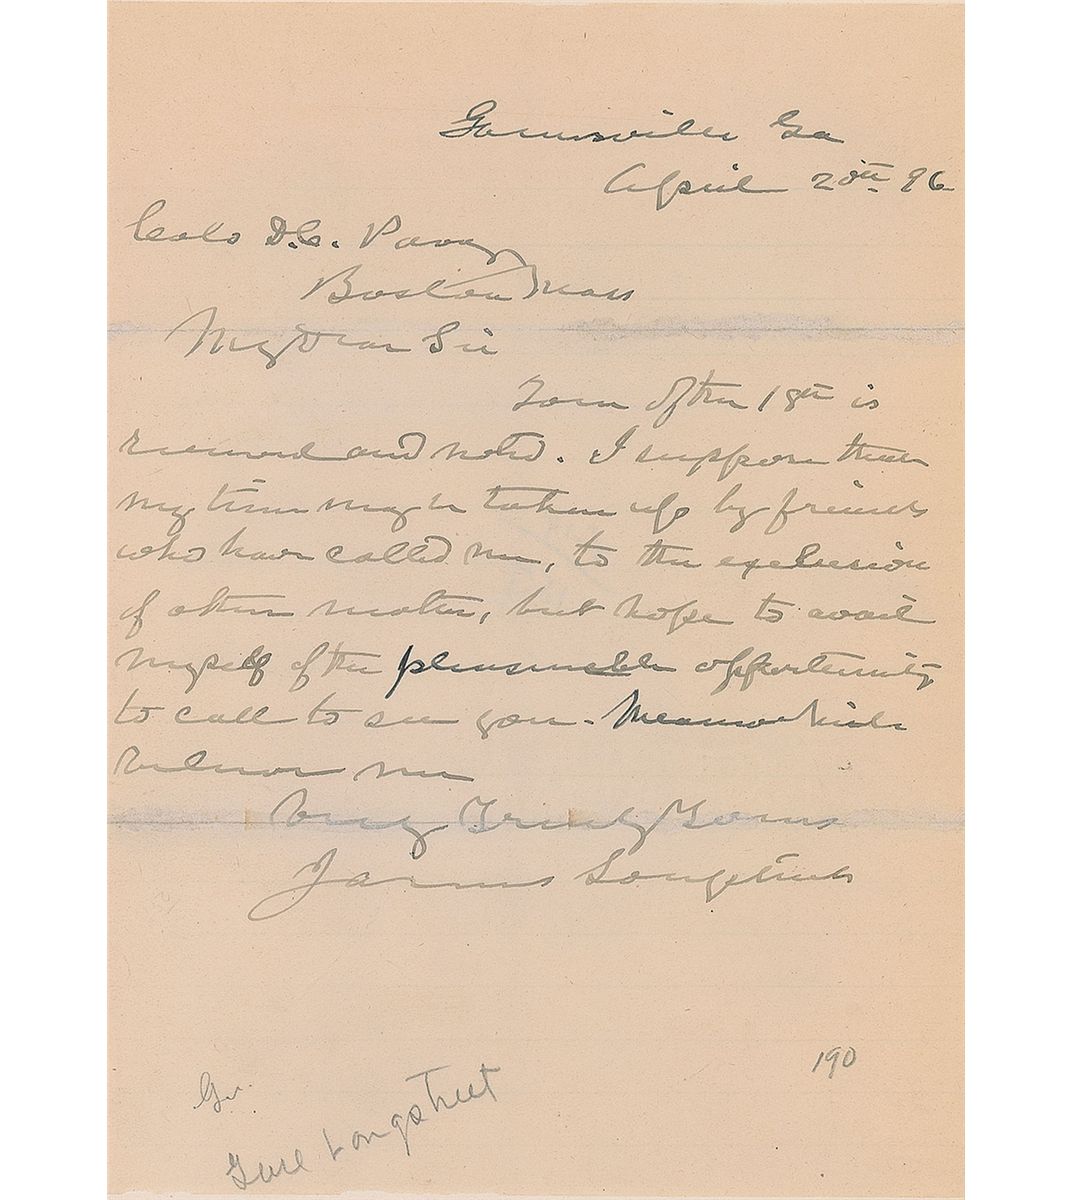 Gainesville Ga
April 20th 96
Colo D.C. Pavey
Boston Mass
My Dear Sir
Your of the 18th is
received and noted. I suppose that
my time may be taken up by friends
who have called me, to the exclusion
of other matter, but hope to avail
myself of the pleasurable opportunity
to call to see you - Meanwhile
believe me
Very Truly Yours
James Longstreet
190
Genl Longstreet